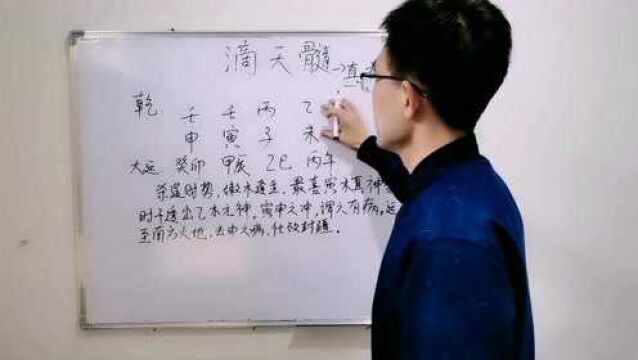 滴天髓
→真
乾 壬 壬 丙 乙
申 寅 子 未
大运 癸卯 甲辰 乙巳 丙午
杀逞财势,嫩木逢金,最喜寅木真神
时干透出乙木元神,寅申之冲,谓之有病。运
至南方火地,去申之病,仕致封疆。